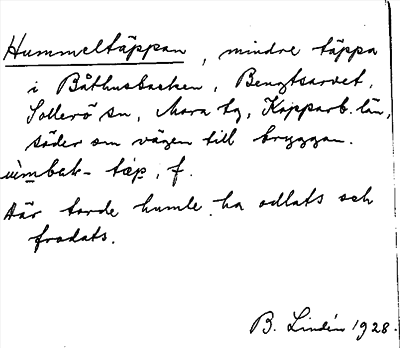 Hummeltäppan, mindre täppa
i Båthusbacken, Bengtsarvet,
Sollerö sn, Mora tg, Kopparb. län,
söder om vägen till bryggan.
täp, f.
Där torde humle ha odlats och
frodats.
B. Lindén 1928.